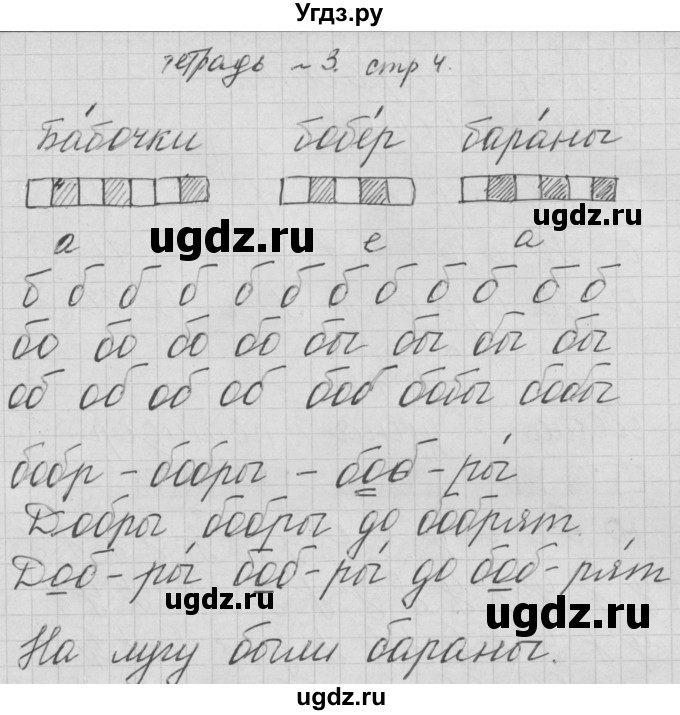 Угдз.ру
тетрадь ~ 3. стр 4.
Ба́бочки бобе́р бара́ны
а е а
ugdz.ru ugdz.ru
б б б б б б б б б б б б
бо бо бо бо бы бы бы бы
об об об об боб бобы бобы
бобр – бобры – боб - ры́
Добры бобры до бобрят.
Доб - ры́ боб - ры́ до боб - ря́т
ugdz.ru ugdz.ru
На лугу были бараны.
ugdz.ru